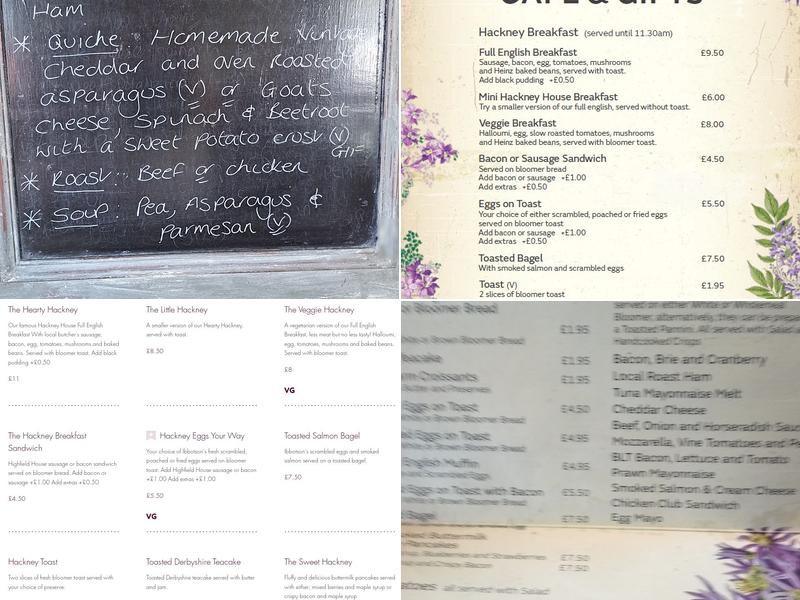 Ham
* Quiche: Homemade
Cheddar and Oven Roasted
asparagus (V) or Goats
cheese, Spinach & Beetroot
with a sweet potato crust (V)
* Roast: Beef or chicken
* Soup: Pea, Asparagus &
Parmesan (V)
CAFE & GIFTS
Hackney Breakfast (served until 11.30am)
Full English Breakfast £9.50
Sausage, bacon, egg, tomatoes, mushrooms
and Heinz baked beans, served with toast.
Add black pudding +£0.50
Mini Hackney House Breakfast £6.00
Try a smaller version of our full english, served without toast.
Veggie Breakfast £8.00
Halloumi, egg, slow roasted tomatoes, mushrooms
and Heinz baked beans, served with bloomer toast.
Bacon or Sausage Sandwich £4.50
Served on bloomer bread
Add bacon or sausage +£1.00
Add extras +£0.50
Eggs on Toast £5.50
Your choice of either scrambled, poached or fried eggs
served on bloomer toast.
Add bacon or sausage +£1.00
Add extras +£0.50
Toasted Bagel £7.50
With smoked salmon and scrambled eggs
Toast (V) £1.95
2 slices of bloomer toast
The Hearty Hackney
Our famous Hackney House Full English
Breakfast With local butcher's sausage,
bacon, egg, tomatoes, mushrooms and baked
beans. Served with bloomer toast. Add black
pudding +£0.50
£11
The Little Hackney
A smaller version of our Hearty Hackney,
served with toast.
£8.50
The Veggie Hackney
A vegetarian version of our Full English
Breakfast, less meat but no less tasty! Halloumi,
egg, tomatoes, mushrooms and baked beans.
Served with bloomer toast.
£8
VG
The Hackney Breakfast
Sandwich
Highfield House sausage or bacon sandwich
served on bloomer bread. Add bacon or
sausage +£1.00 Add extras +£0.50
£4.50
Hackney Eggs Your Way
Your choice of Ibbotson's fresh scrambled,
poached or fried eggs served on bloomer
toast. Add Highfield House sausage or bacon
+£1.00 Add extras +£1.00
£5.50
VG
Toasted Salmon Bagel
Ibbotson's scrambled eggs and smoked
salmon served on a toasted bagel.
£7.50
Hackney Toast
Two slices of fresh bloomer toast served with
your choice of preserve.
Toasted Derbyshire Teacake
Toasted Derbyshire teacake served with butter
and jam.
The Sweet Hackney
Fluffy and delicious buttermilk pancakes served
with either; mixed berries and maple syrup or
crispy bacon and maple syrup
Bloomer Bread
£1.95
£1.95
Croissants
£1.95
Eggs on Toast £4.50
on Bloomer Bread
Eggs on Toast £4.95
£4.95
Eggs on Toast with Bacon £5.50
on Bloomer Bread
Bagel £7.50
Buttermilk
£7.50
£7.50
all served with Salad
Bloomer, alternatively, they can be
a Toasted Panini. All served with Salad
Handcooked Crisps
Bacon, Brie and Cranberry
Local Roast Ham
Tuna Mayonnaise Melt
Cheddar Cheese
Beef, Onion and Horseradish
Mozzarella, Vine Tomatoes and
BLT Bacon, Lettuce and Tomato
Prawn Mayonnaise
Smoked Salmon & Cream Cheese
Chicken Club Sandwich
Egg Mayo